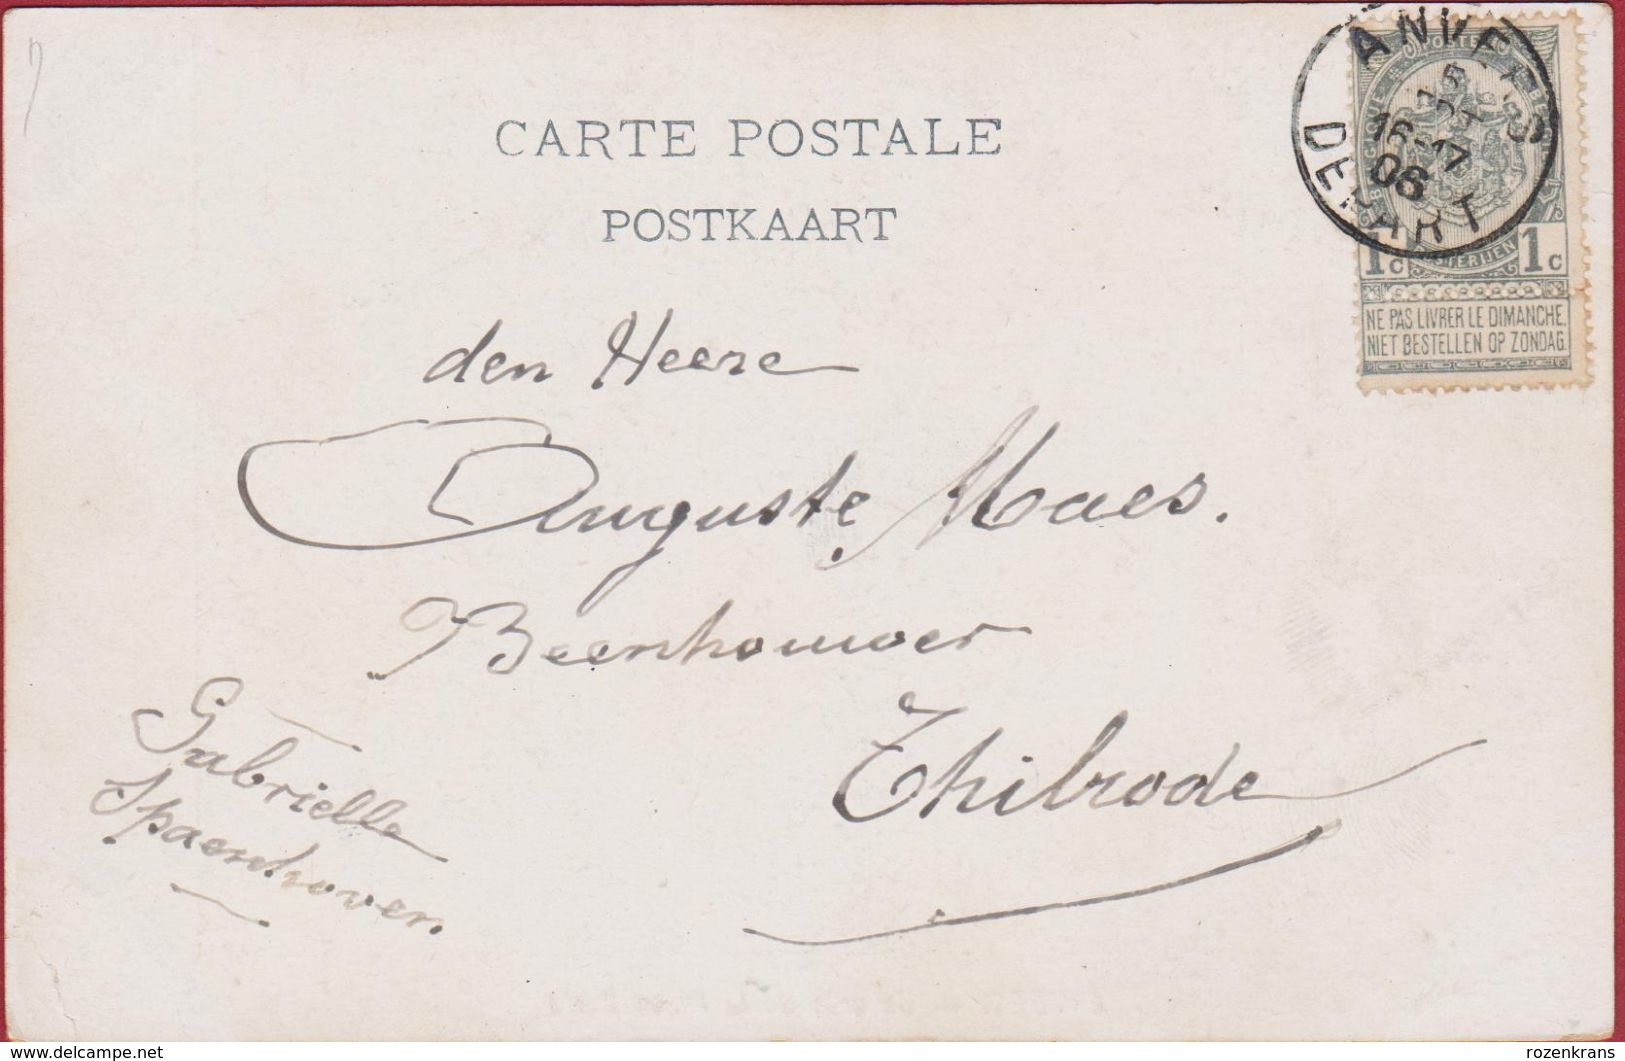 CARTE POSTALE
POSTKAART
ANVERS
5
16-17
06
DEPART
POSTES
1c 1c
NE PAS LIVRER LE DIMANCHE.
NIET BESTELLEN OP ZONDAG.
den Heere
Auguste Maes.
Beenhouwer
Thilrode
Gabrielle
Spaenhoven.
© rozenkrans
delcampe.net